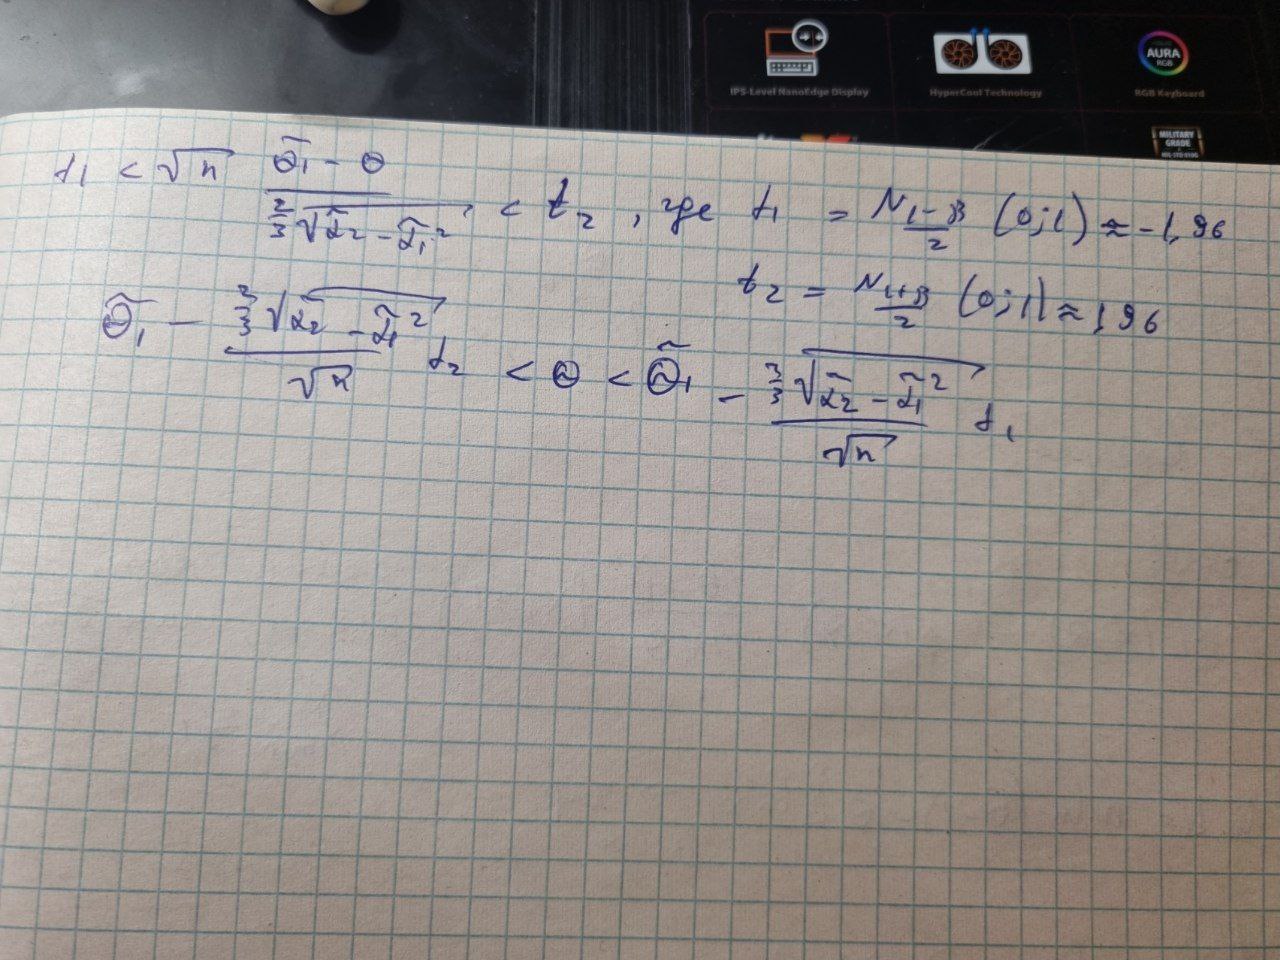 IPS-Level NanoEdge Display
HyperCool Technology
AURA RGB
RGB Keyboard
MILITARY GRADE
t₁ < √n (θ̃₁ − θ) / (2/3 √(α̃₂ − α̃₁²)) < t₂ , где t₁ = N_{(1−β)/2} (0;1) ≈ −1,96
t₂ = N_{(1+β)/2} (0;1) ≈ 1,96
θ̃₁ − (2/3 √(α̃₂ − α̃₁²)) / √n t₂ < θ < θ̃₁ − (2/3 √(α̃₂ − α̃₁²)) / √n t₁